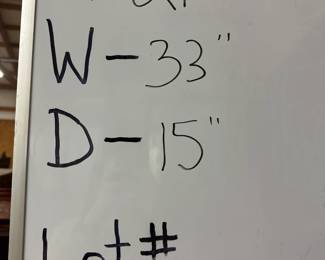 W-33"
D-15"
Lot#